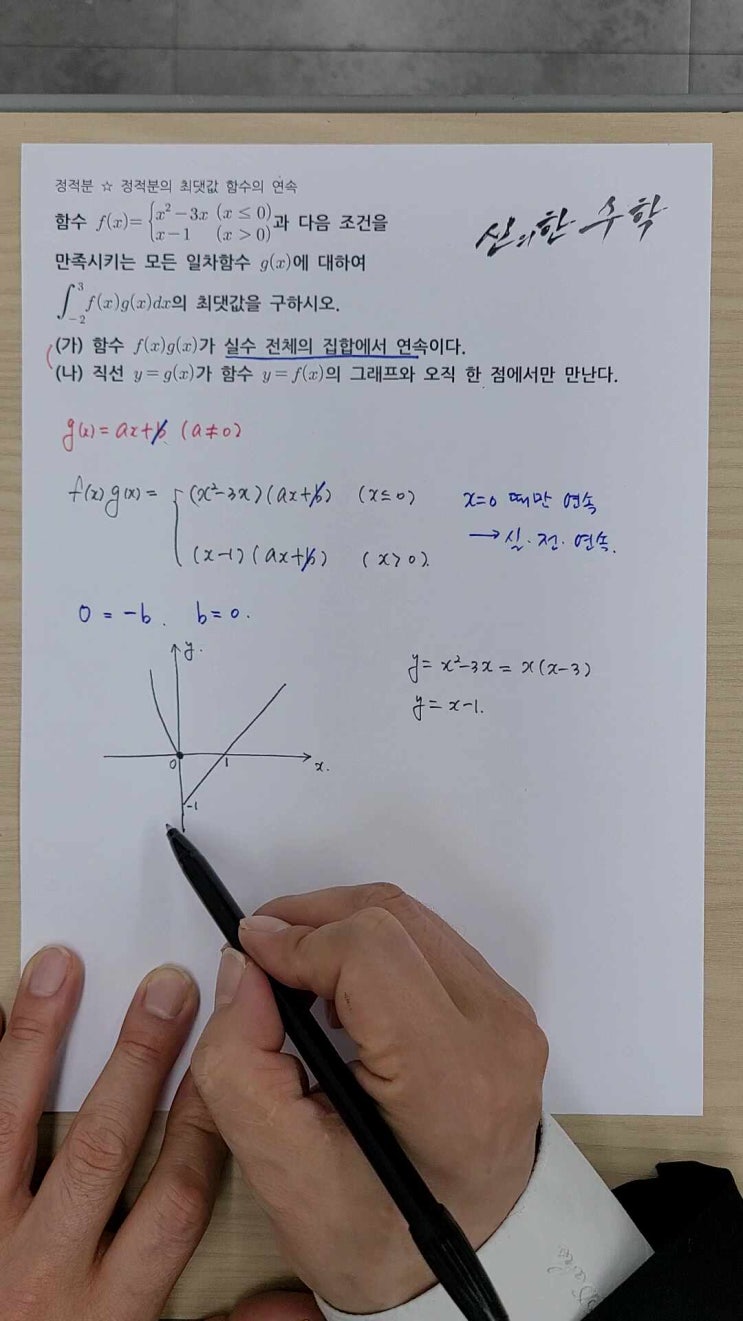 정적분 ☆ 정적분의 최댓값 함수의 연속
함수 f(x)={x²−3x (x≤0)
x−1 (x>0) 과 다음 조건을
신의한 수학
만족시키는 모든 일차함수 g(x)에 대하여
∫₋₂³ f(x)g(x)dx의 최댓값을 구하시오.
(가) 함수 f(x)g(x)가 실수 전체의 집합에서 연속이다.
(나) 직선 y=g(x)가 함수 y=f(x)의 그래프와 오직 한 점에서만 만난다.
g(x)=ax+b (a≠0)
f(x)g(x)={(x²−3x)(ax+b) (x≤0)
(x−1)(ax+b) (x>0).
x=0 때만 연속
→실·전·연속.
0=−b. b=0.
y=x²−3x=x(x−3)
y=x−1.
y.
0
1
x.
−1